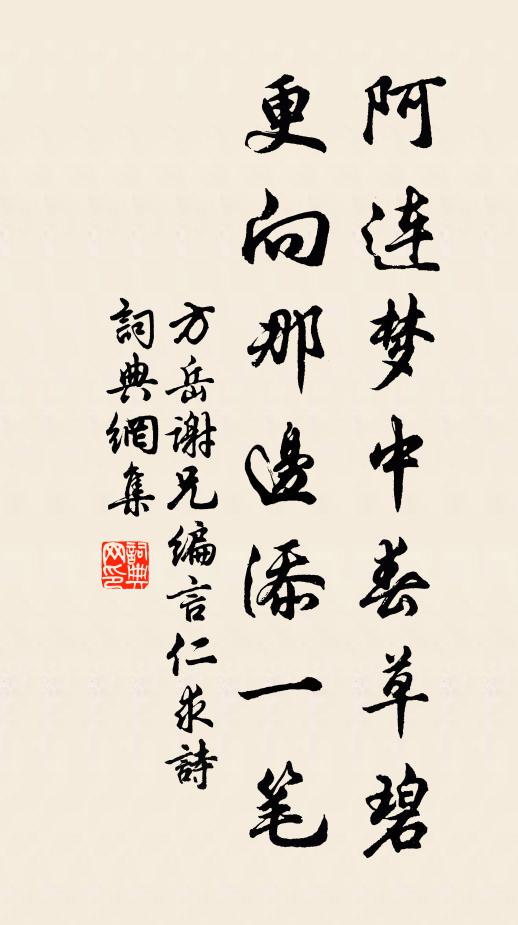 阿连梦中春草碧
更向那邊添一笔
方岳谢兄编言仁求詩
詞典網集
詞典网印